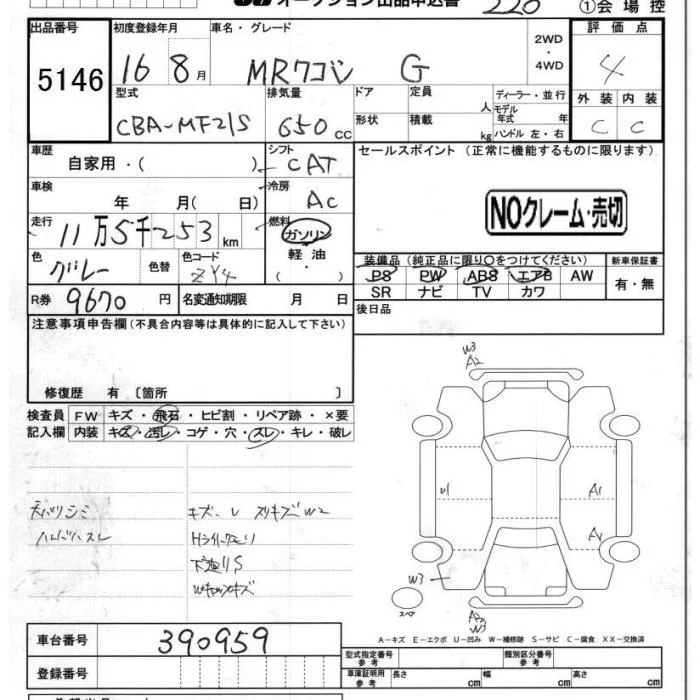 ①会場控
出品番号 初度登録年月 車名・グレード 2WD・4WD 評価点
5146 16 8月 MRワゴン G 4
型式 排気量 ドア 定員 人 ディーラー・並行 外装 内装
CBA-MF21S 650cc 形状 積載 kg モデル年式 年 ハンドル 左・右 C C
車歴 自家用・( ) シフト CAT セールスポイント (正常に機能するものに限ります)
車検 年 月( 日) 冷房 AC
NOクレーム・売切
走行 11万5千253km 燃料 ガソリン 軽油 ( )
色 グレー 色替 色コード ZY4
装備品 (純正品に限り○をつけてください) 新車保証書
PS PW ABS エアB AW 有・無
SR ナビ TV カワ
R券 9670円 名変通知期限 月 日
後日品
注意事項申告欄(不具合内容等は具体的に記入して下さい)
修復歴 有 〔箇所 〕
検査員 FW キズ・飛石・ヒビ割・リペア跡・×要
記入欄 内装 キズ・汚レ・コゲ・穴・スレ・キレ・破レ
W3
A2
U1 A1
天バリシミ キズ、レ スリキズW2
ハンドルスレ
下廻りS
W3
スペア
A2
W3
A-キズ E-エクボ U-凹み W-補修跡 S-サビ C-腐食 XX-交換済
車台番号 390959
型式指定番号 参考 類別区分番号 参考
登録番号 車庫証明用 参考 長さ cm 幅 cm 高さ cm